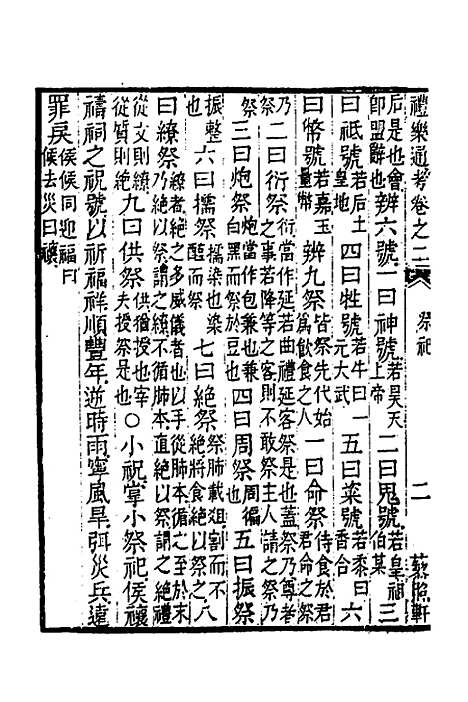 禮樂通考卷之二 祭祀 二 藜照軒
后是也會即盟辭也辨六號一曰神號若昊天上帝二曰鬼號若皇祖伯某三
曰祇號若后土皇地四曰牲號若牛曰一元大武五曰粢號若黍曰香合六
曰幣號若嘉玉量幣辨九祭皆祭先代始爲飲食之人一曰命祭侍食於君君命之祭
乃祭二曰衍祭衍當作延若曲禮延客祭是也蓋祭乃尊者之事若降等之客則不敢祭主人請之祭乃
祭三曰炮祭炮當作包兼也兼白黑而祭於豆也四曰周祭周徧也五曰振祭
振整也六曰擩祭擩染也染醢而祭七曰絕祭祭肺載俎割而不絕將食絕以祭之八
曰繚祭繚者絕之多威儀者也以手從肺本循之至於末乃絕以祭謂之繚不循肺本直絕以祭謂之絕禮
從文則繚從質則絕九曰供祭供猶授也宰夫授祭是也〇小祝掌小祭祀侯禳
禱祠之祝號以祈福祥順豐年逆時雨寧風旱弭災兵遠
罪戾侯候同迎福曰候去災曰禳